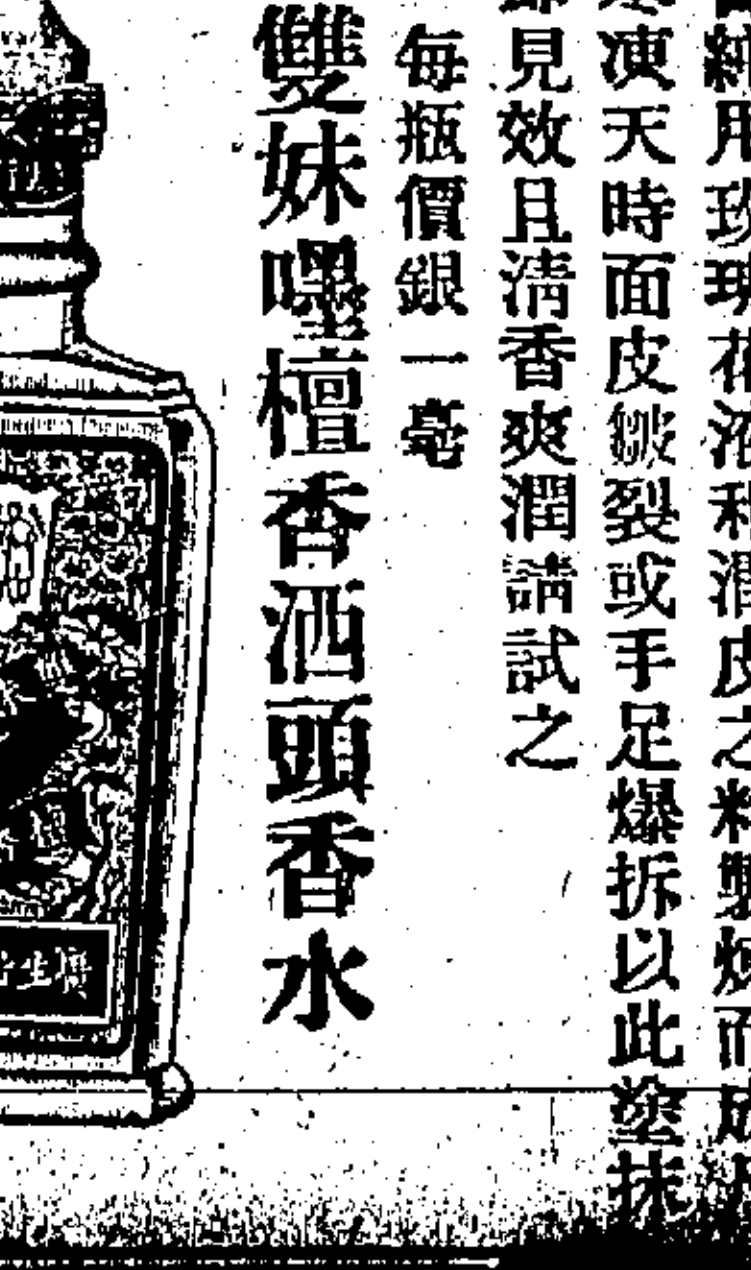 純用玫瑰花液和潤皮之料製煉而成
凍天時面皮皺裂或手足爆拆以此塗抹
即見效且清香爽潤請試之
每瓶價銀一毫
雙妹嘜檀香酒頭香水
廣生